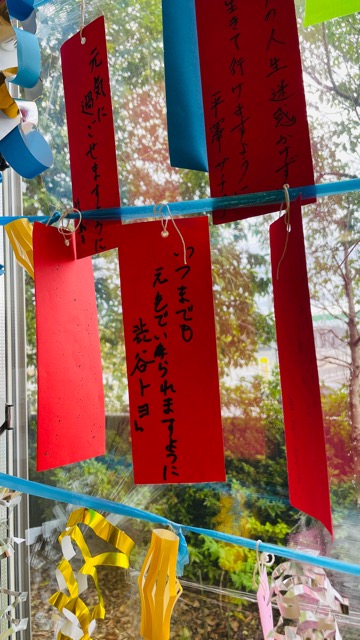 元気に
過ごせますように
の人生迷惑かけず
生きて行けますように
いつまでも
元気でいられますように
渋谷トヨ